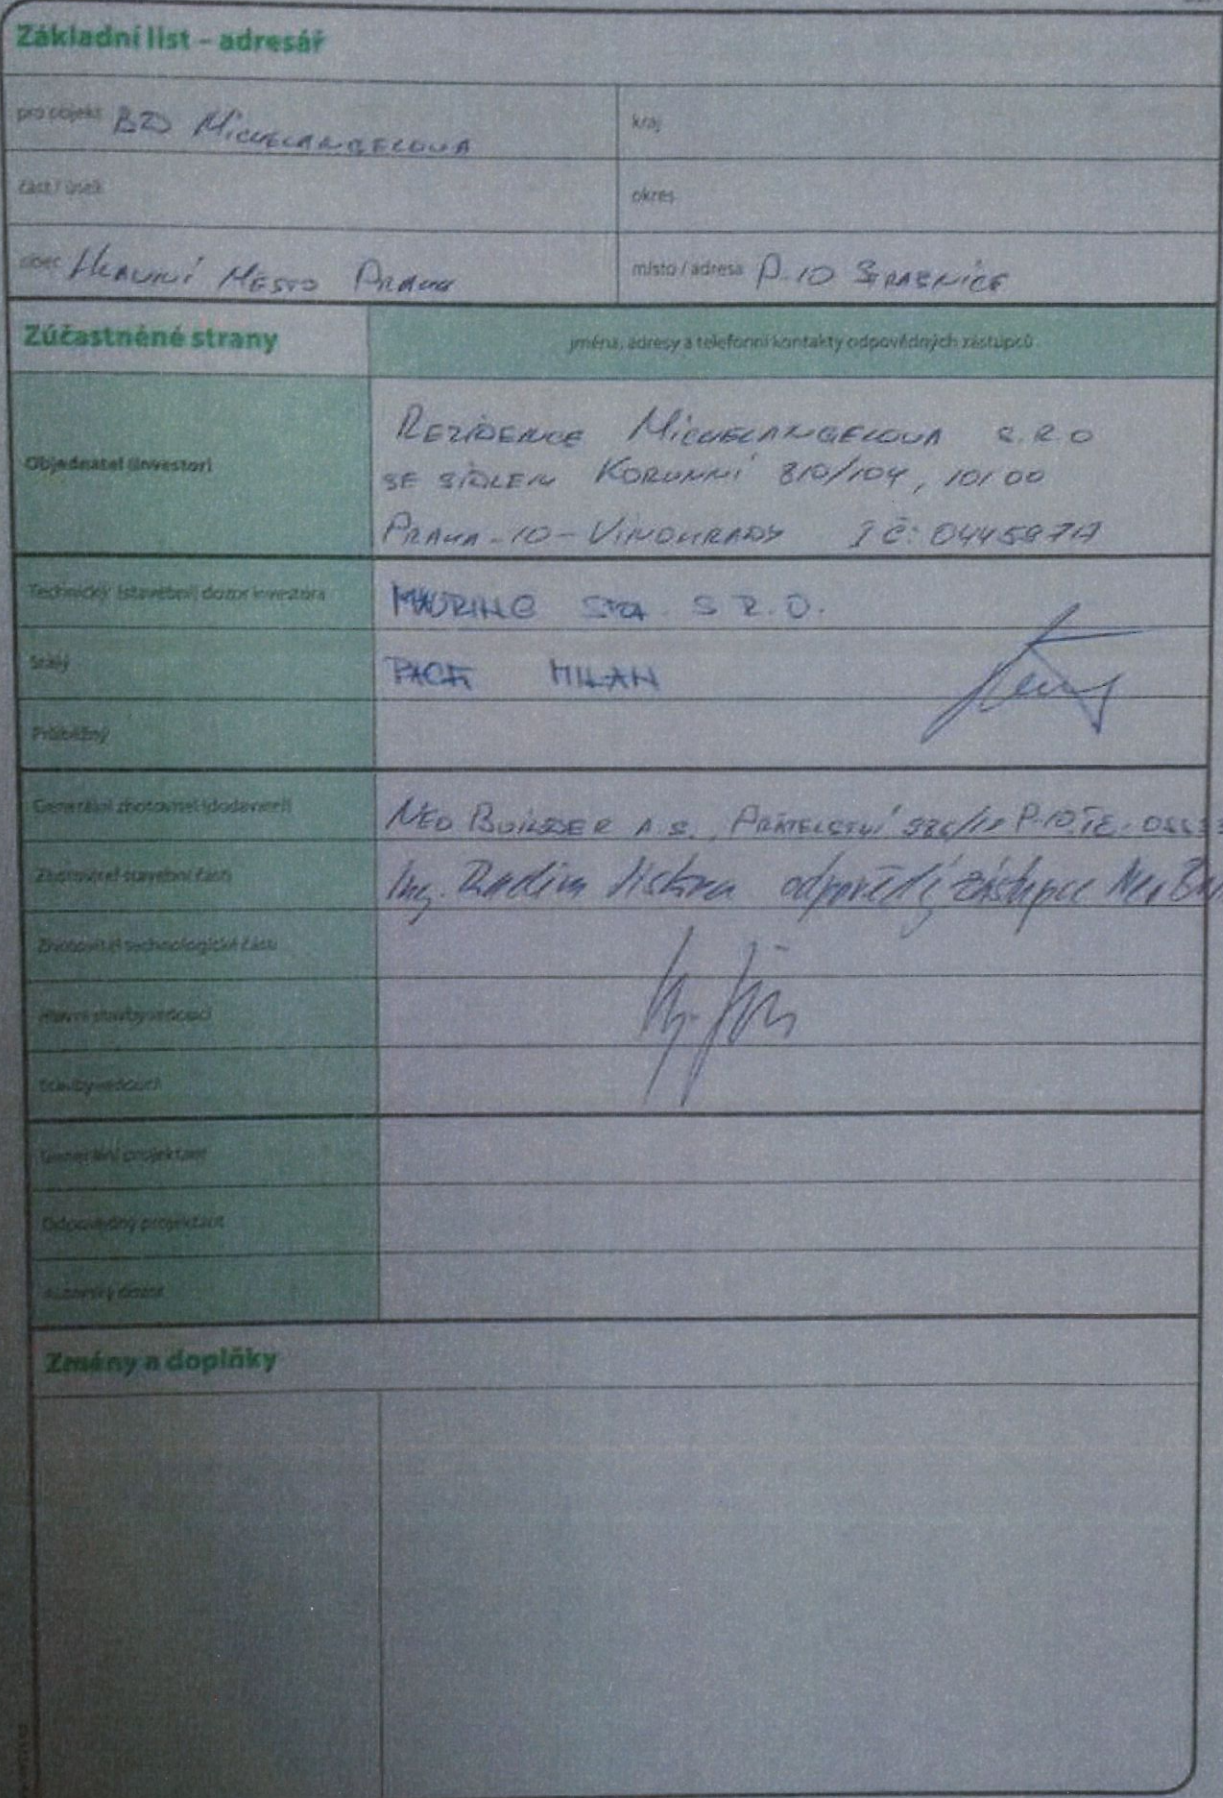 Základní list – adresář
pro objekt BD MICHELANGELOVA
kraj
část / úsek
okres
obec HLAVNÍ MĚSTO PRAHA
místo / adresa P-10 STRAŠNICE
Zúčastněné strany
jména, adresy a telefonní kontakty odpovědných zástupců
Objednatel (investor)
REZIDENCE MICHELANGELOVA S.R.O
SE SÍDLEM KORUNNÍ 810/104, 101 00
PRAHA-10-VINOHRADY IČ:
Technický (stavební) dozor investora
S.R.O.
Stálý
MILAN
Průběžný
Generální zhotovitel (dodavatel)
NEO BUILDER A.S., PŘÁTELSTVÍ P-10, IČ:
Zhotovitel stavební části
Ing. Radim odpovědný zástupce Neo
Zhotovitel technologické části
Hlavní stavbyvedoucí
Stavbyvedoucí
Generální projektant
Odpovědný projektant
Autorský dozor
Změny a doplňky